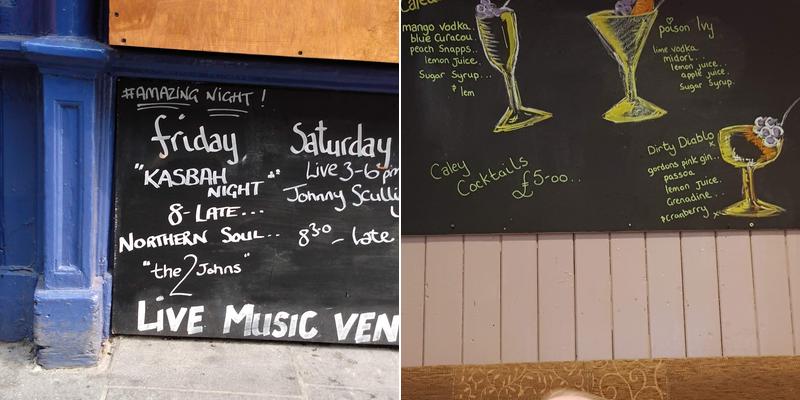 #AMAZING NIGHT !
friday
"KASBAH
NIGHT"
8-LATE...
NORTHERN SOUL..
"the 2 Johns"
Saturday
Live 3-6pm
Johnny Scull
830 - late
LIVE MUSIC VEN
mango vodka..
blue Curacou
peach Snapps..
lemon juice..
Sugar Syrup...
lem
poison Ivy
lime vodka
midori..
lemon juice..
apple juice.
Sugar Syrup.
Caley
Cocktails
£5-00..
Dirty Diablo
gordons pink gin..
passoa
lemon juice..
Grenadine..
Cranberry